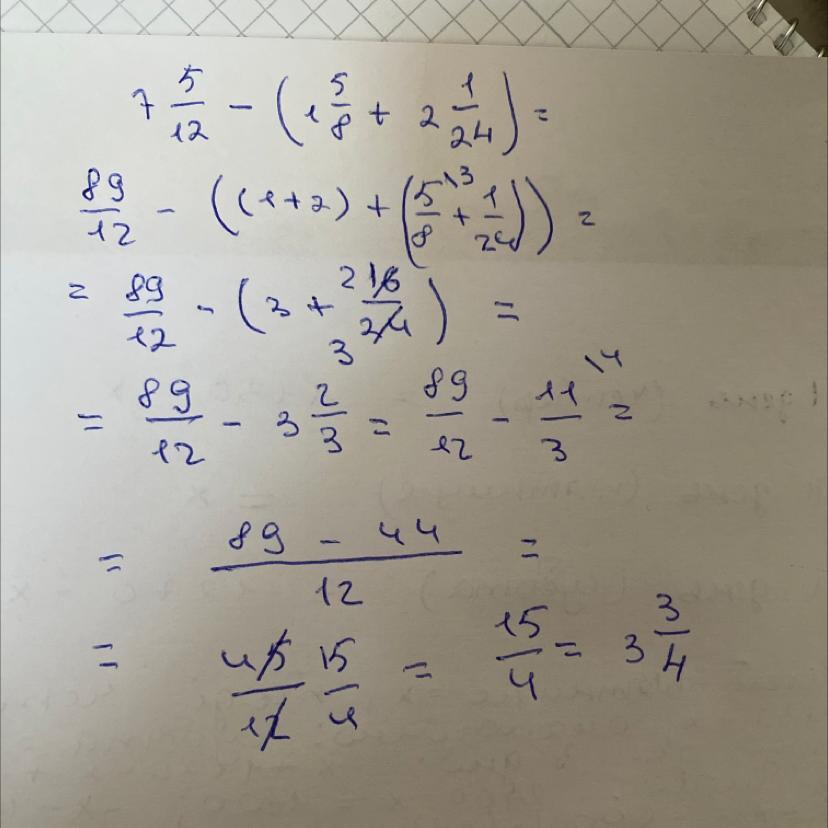 7 5/12 - (1 5/8 + 2 1/24) =
89/12 - ((1+2) + (5\3/8 + 1/24)) =
= 89/12 - (3 + 2 16/24 3) =
= 89/12 - 3 2/3 = 89/12 - 11\4/3 =
= 89 - 44/12 =
= 45/12 15/4 = 15/4 = 3 3/4